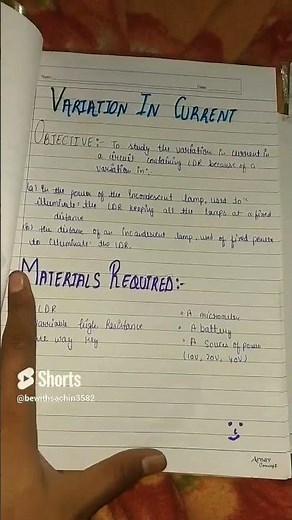 Date
VARIATION IN CURRENT
OBJECTIVE:- To study the variation in current in
a circuit containing LDR because of a
variation in:-
(a) In the power of the incandescent lamp, used to
illuminate the LDR keeping all the lamps at a fixed
distance
(b) the distance of an incandescent lamp, used of fixed power
to illuminate the LDR.
MATERIALS REQUIRED:-
LDR
variable high Resistance
way key
• A microammeter
• A battery
• A source of power
(10V, 20V, 40V)
Shorts
@bewithsachin3582
Concept